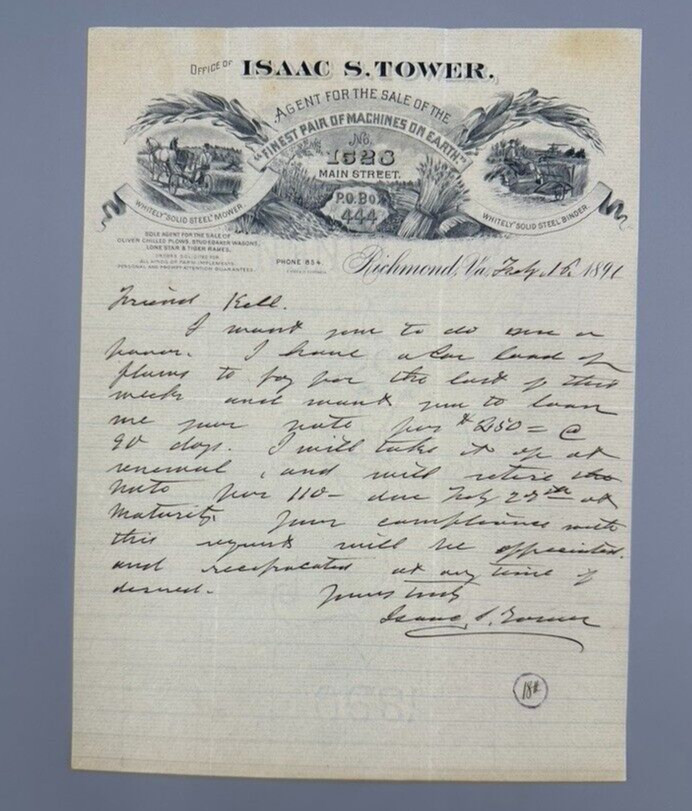 OFFICE OF ISAAC S. TOWER.
AGENT FOR THE SALE OF THE
"FINEST PAIR OF MACHINES ON EARTH."
No.
1528
MAIN STREET.
P.O. BOX
444
WHITELY "SOLID STEEL" MOWER.
WHITELY "SOLID STEEL" BINDER.
SOLE AGENT FOR THE SALE OF
OLIVER CHILLED PLOWS, STUDEBAKER WAGONS,
LONE STAR & TIGER RAKES.
ORDERS SOLICITED FOR
ALL KINDS OF FARM IMPLEMENTS.
PERSONAL AND PROMPT ATTENTION GUARANTEED.
PHONE 854.
Richmond, Va. Feby 16, 1891
Friend Kell.
I want you to do me a
favor. I have a car load of
plows to pay for the last of this
week and want you to loan
me your note for $250= @
90 days. I will take it up at
renewal, and will retire the
note for 110- due Feby 25th at
maturity. Your compliance with
this request will be appreciated.
and reciprocated at any time if
desired.
Yours truly
Isaac S. Tower